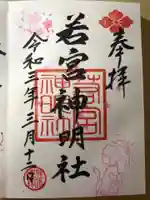 奉拝
若宮神明社
令和三年三月十二日